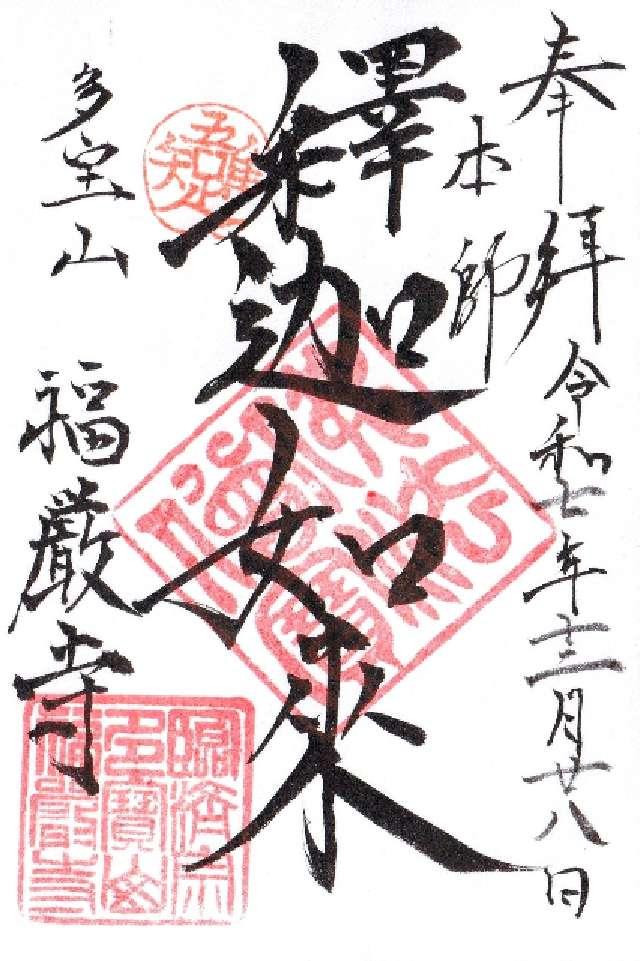 奉拝
令和七年十二月廿八日
本師
釋迦如来
多宝山
福厳寺
吾唯足知
臨済宗
多寳山
福嚴寺